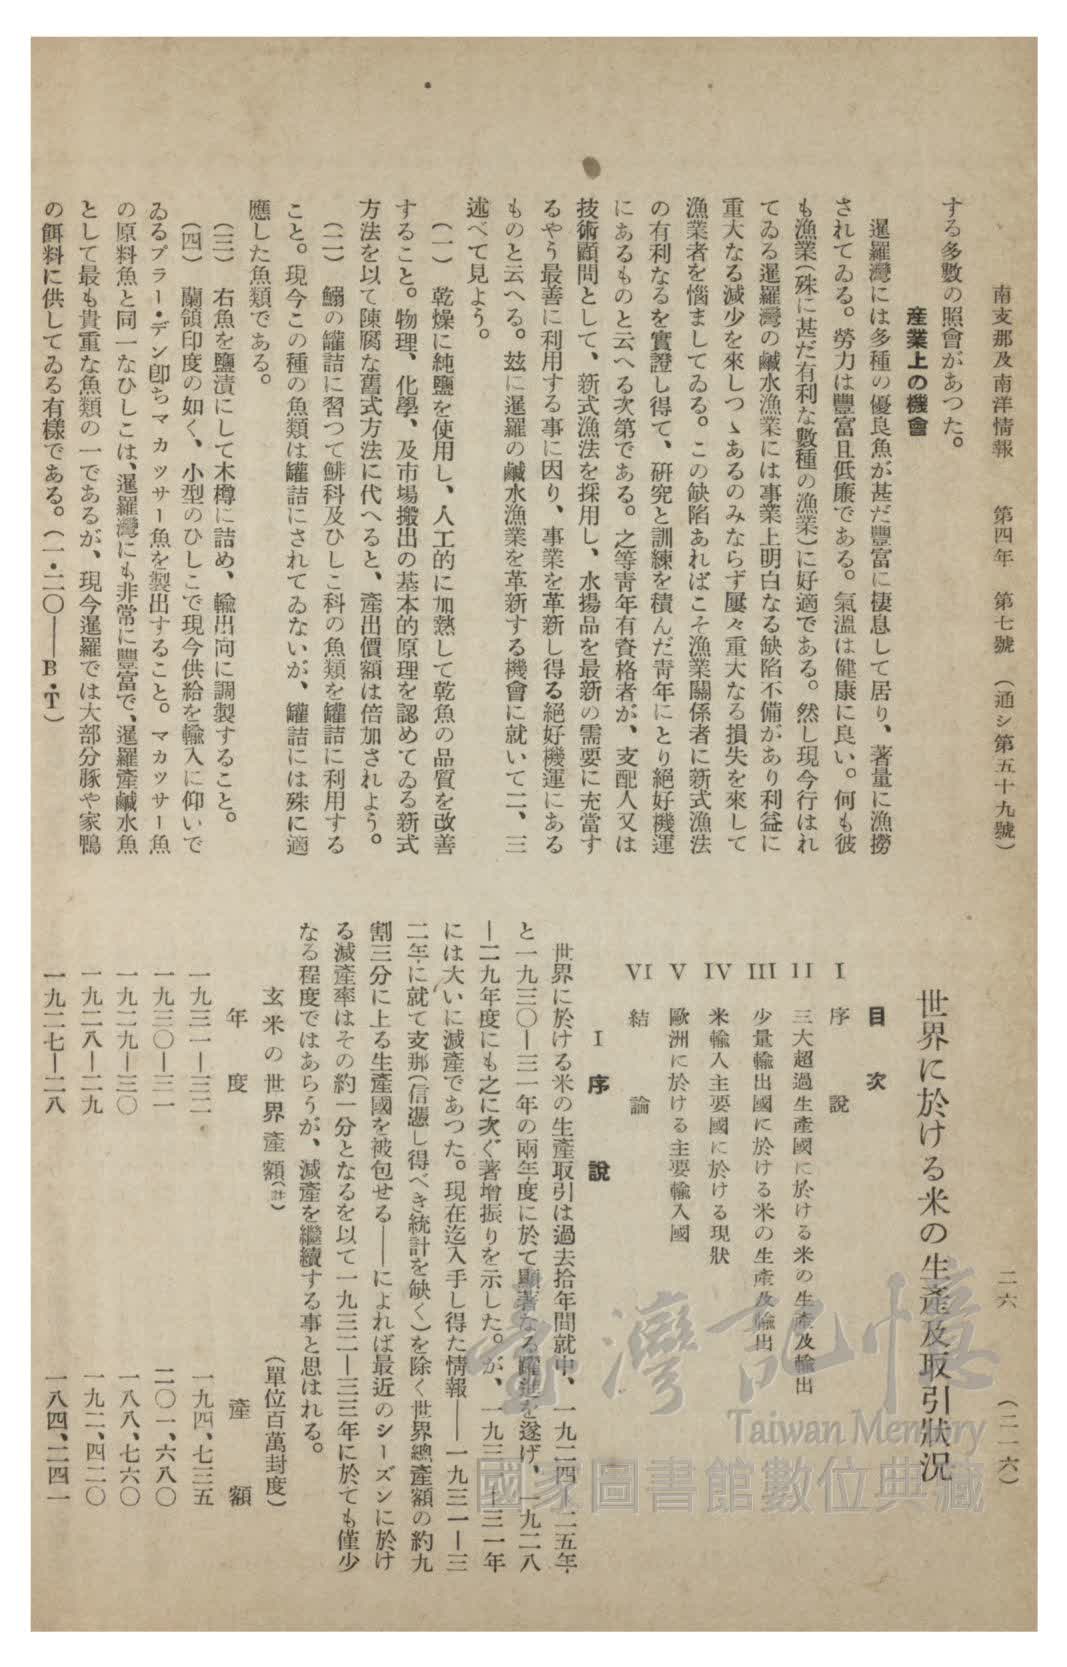 南支那及南洋情報　第四年　第七號　（通シ第五十九號）　二六　（二一六）
する多數の照會があつた。
産業上の機會
暹羅灣には多種の優良魚が甚だ豐富に棲息して居り、著量に漁撈
されてゐる。勞力は豐富且低廉である。氣溫は健康に良い。何も彼
も漁業（殊に甚だ有利な數種の漁業）に好適である。然し現今行はれ
てゐる暹羅灣の鹹水漁業には事業上明白なる缺陷不備があり利益に
重大なる減少を來しつゝあるのみならず屢々重大なる損失を來して
漁業者を惱ましてゐる。この缺陷あればこそ漁業關係者に新式漁法
の有利なるを實證し得て、硏究と訓練を積んだ靑年にとり絕好機運
にあるものと云へる次第である。之等靑年有資格者が、支配人又は
技術顧問として、新式漁法を採用し、水揚品を最新の需要に充當す
るやう最善に利用する事に因り、事業を革新し得る絕好機運にある
ものと云へる。玆に暹羅の鹹水漁業を革新する機會に就いて二、三
述べて見よう。
（一）　乾燥に純鹽を使用し、人工的に加熱して乾魚の品質を改善
すること。物理、化學、及市場搬出の基本的原理を認めてゐる新式
方法を以て陳腐な舊式方法に代へると、產出價額は倍加されよう。
（二）　鰯の罐詰に習つて鯡科及ひしこ科の魚類を罐詰に利用する
こと。現今この種の魚類は罐詰にされてゐないが、罐詰には殊に適
應した魚類である。
（三）　右魚を鹽漬にして木樽に詰め、輸出向に調製すること。
（四）　蘭領印度の如く、小型のひしこで現今供給を輸入に仰いで
ゐるプラー・デン卽ちマカッサー魚を製出すること。マカッサー魚
の原料魚と同一なひしこは、暹羅灣にも非常に豐富で、暹羅產鹹水魚
として最も貴重な魚類の一であるが、現今暹羅では大部分豚や家鴨
の餌料に供してゐる有樣である。（一・二〇——B・T）
世界に於ける米の生產及取引狀況
目次
I　序說
II　三大超過生產國に於ける米の生產及輸出
III　少量輸出國に於ける米の生產及輸出
IV　米輸入主要國に於ける現狀
V　歐洲に於ける主要輸入國
VI　結論
I　序說
世界に於ける米の生產取引は過去拾年間就中、一九二四—二五年
と一九三〇—三一年の兩年度に於て顯著なる躍進を遂げ、一九二八
—二九年度にも之に次ぐ著增振りを示した。が、一九三〇—三一年
には大いに減產であつた。現在迄入手し得た情報——一九三一—三
二年に就て支那（信憑し得べき統計を缺く）を除く世界總產額の約九
割三分に上る生產國を被包せる——によれば最近のシーズンに於け
る減產率はその約一分となるを以て一九三二—三三年に於ても僅少
なる程度ではあらうが、減產を繼續する事と思はれる。
玄米の世界產額（註）　（單位百萬封度）
年度　產額
一九三一—三二　一九四、七三五
一九三〇—三一　二〇一、六八〇
一九二九—三〇　一八八、七六〇
一九二八—二九　一九二、四二〇
一九二七—二八　一八四、二四一
臺灣記憶
Taiwan Memory
國家圖書館數位典藏